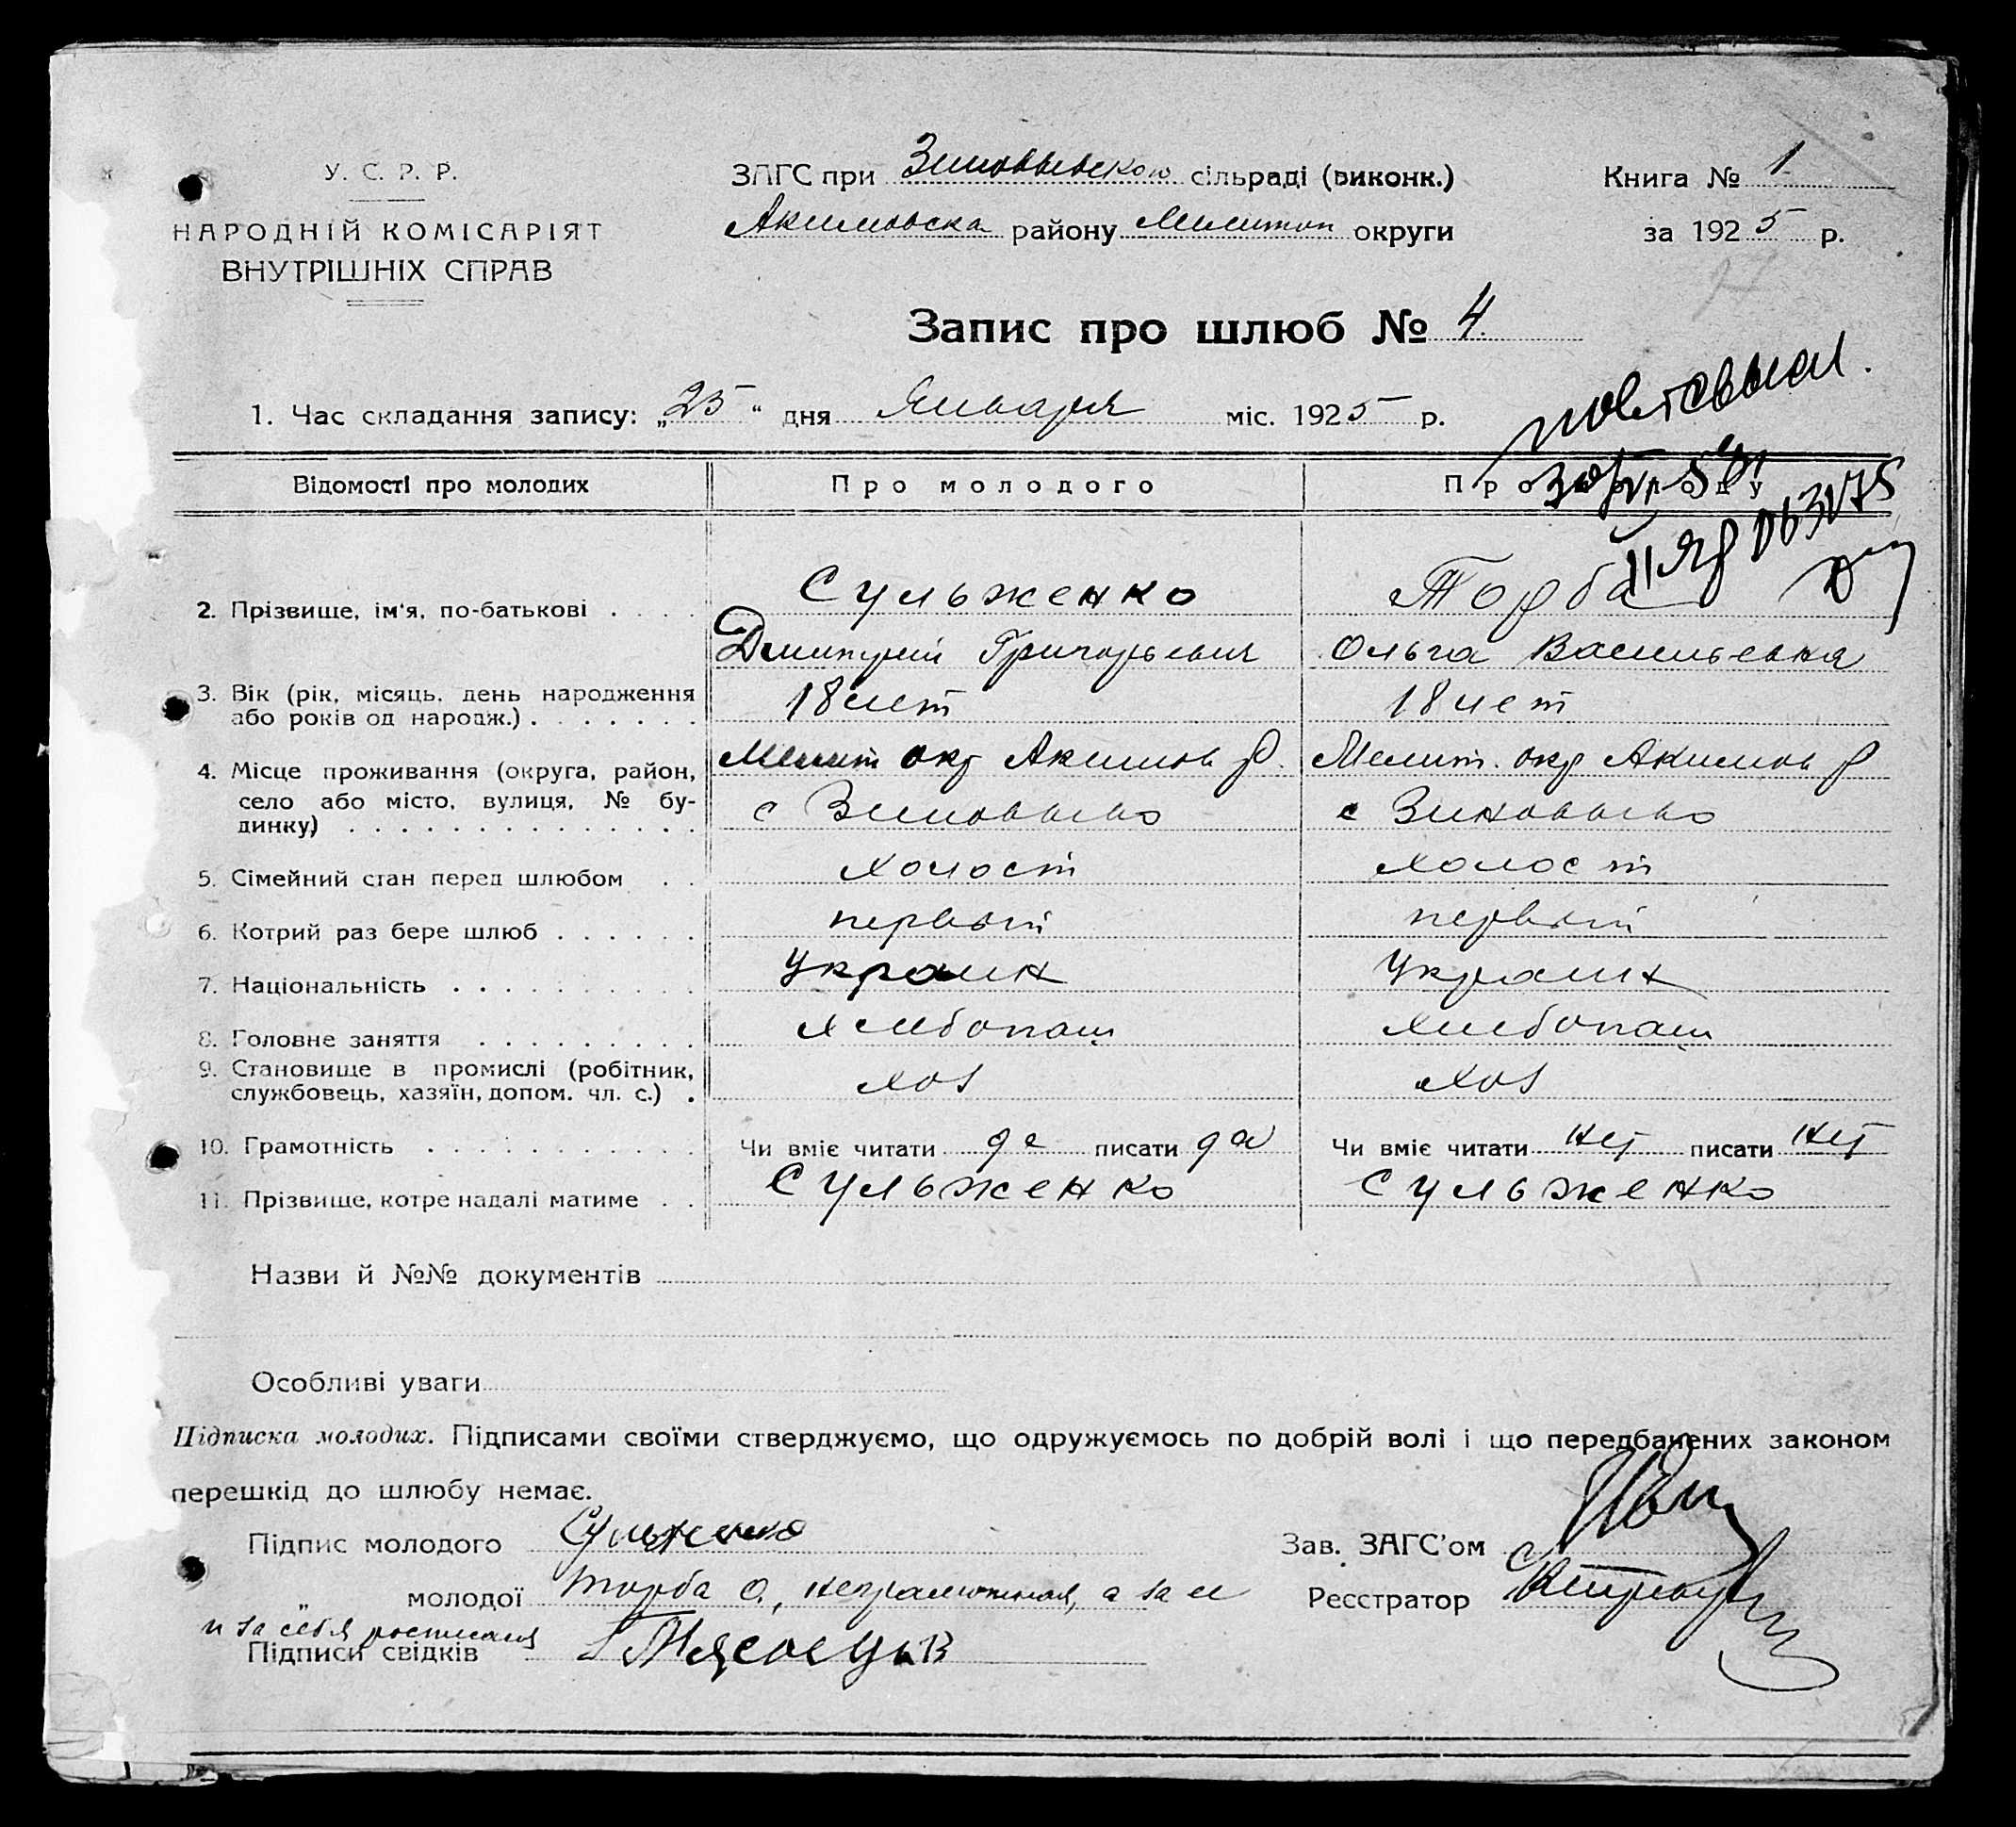 У. С. Р. Р.
НАРОДНІЙ КОМІСАРІЯТ
ВНУТРІШНІХ СПРАВ
ЗАГС при сільраді (виконк.)
Акимовска району Мелитоп округи
Книга № 1
за 1925 р.
Запис про шлюб № 4
1. Час складання запису: „25“ дня Января міс. 1925 р.
Відомості про молодих Про молодого Про молоду
2. Прізвище, ім'я, по-батькові Сульженко Торба
Дмитрий Григорьевич Ольга Васильевна
3. Вік (рік, місяць, день народження
або років од народж.) 18 лет 18 лет
4. Місце проживання (округа, район, Мелит окр Акимов р. Мелит. окр Акимов р
село або місто, вулиця, № бу-
динку) с Зиновьево с Зиновьево
5. Сімейний стан перед шлюбом холост холост
6. Котрий раз бере шлюб первый первый
7. Національність Украин Украин
8. Головне заняття хлебопаш хлебопаш
9. Становище в промислі (робітник,
службовець, хазяїн, допом. чл. с.) хоз хоз
10. Грамотність Чи вміє читати да писати да Чи вміє читати нет писати нет
11. Прізвище, котре надалі матиме Сульженко Сульженко
Назви й №№ документів
Особливі уваги
Підписка молодих. Підписами своїми стверджуємо, що одружуємось по добрій волі і що передбачених законом
перешкід до шлюбу немає.
Підпис молодого Сульженко
Зав. ЗАГС'ом
„ молодої Торба О., неграмотная, а за ее
Реєстратор
и за себя росписался
Підписи свідків